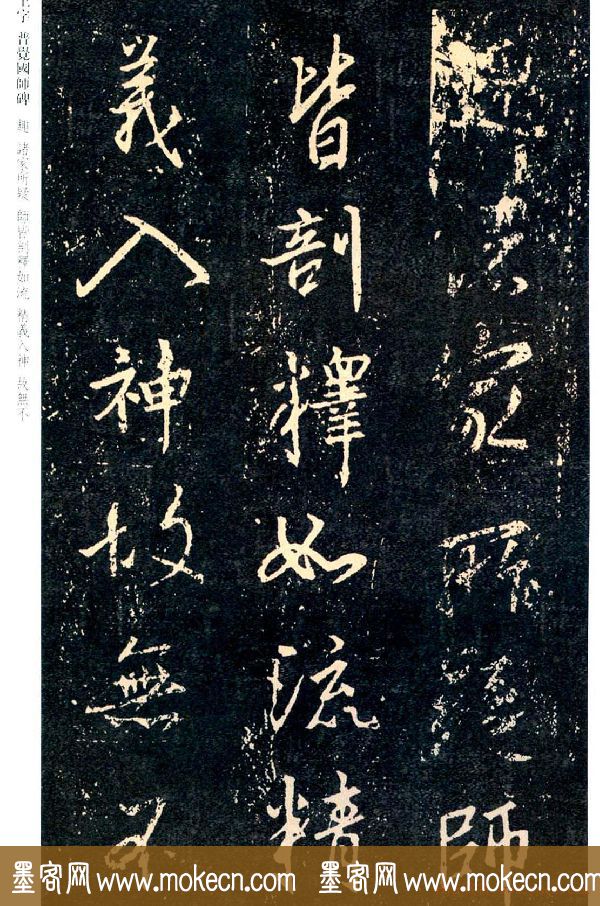 趣諸家所疑師
皆剖釋如流精
義入神故無不
王字 普覺國師碑 趣 諸家所疑 師皆剖釋如流 精義入神 故無不
墨客网 www.mokecn.com 墨客网 www.mokecn.com